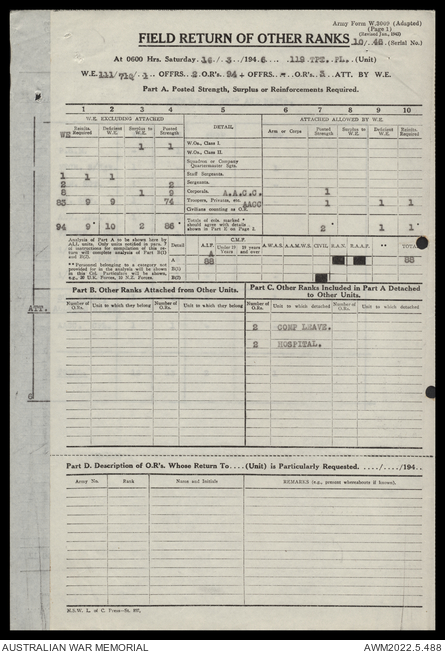 Army Form W.3009 (Adapted)
(Page 1)
(Revised Jan., 1943)
FIELD RETURN OF OTHER RANKS 10/ 46 (Serial No.)
At 0600 Hrs. Saturday 16/ 3 /194 6 112 TPT. PL. (Unit)
W.E. 111/710/ 1 OFFRS. 2 O.R's. 94 + OFFRS. - O.R's. 1 ATT. BY W.E.
Part A. Posted Strength, Surplus or Reinforcements Required.
1 2 3 4 5 6 7 8 9 10
W.E. EXCLUDING ATTACHED DETAIL ATTACHED ALLOWED BY W.E.
WE Reinfts. Required Deficient W.E. Surplus to W.E. Posted Strength Arm or Corps Posted Strength Surplus to W.E. Deficient W.E. Reinfts. Required
1 1 W.Os., Class I.
W.Os., Class II.
Squadron or Company Quartermaster Sgts.
1 1 1 Staff Sergeants.
2 2 Sergeants.
8 1 9 Corporals. A.A.C.C. 1
83 9 9 74 Troopers, Privates, etc. AACC 1 1 1
Civilians counting as O.R.
94 9* 10 2 86* Totals of cols. marked * should agree with details shown in Part E on Page 1. 2* 1 1*
Analysis of Part A to be shown here by
ALL units.
Detail A.I.F. C.M.F. Under 19 Years 19 years and over A.W.A.S. A.A.M.W.S. CIVIL R.A.N. R.A.A.F. ** TOTAL
A 88 88
B(i)
B(ii)
Part B. Other Ranks Attached from Other Units.
Part C. Other Ranks Included in Part A Detached
to Other Units.
Number of O.Rs. Unit to which they belong Number of O.Rs. Unit to which they belong Number of O.Rs. Unit to which detached Number of O.Rs. Unit to which detached
2 COMP LEAVE.
2 HOSPITAL.
Part D. Description of O.R's. Whose Return To....(Unit) is Particularly Requested. ..../..../194..
Army No. Rank Name and Initials REMARKS (e.g., present whereabouts if known).
AUSTRALIAN WAR MEMORIAL
AWM2022.5.488